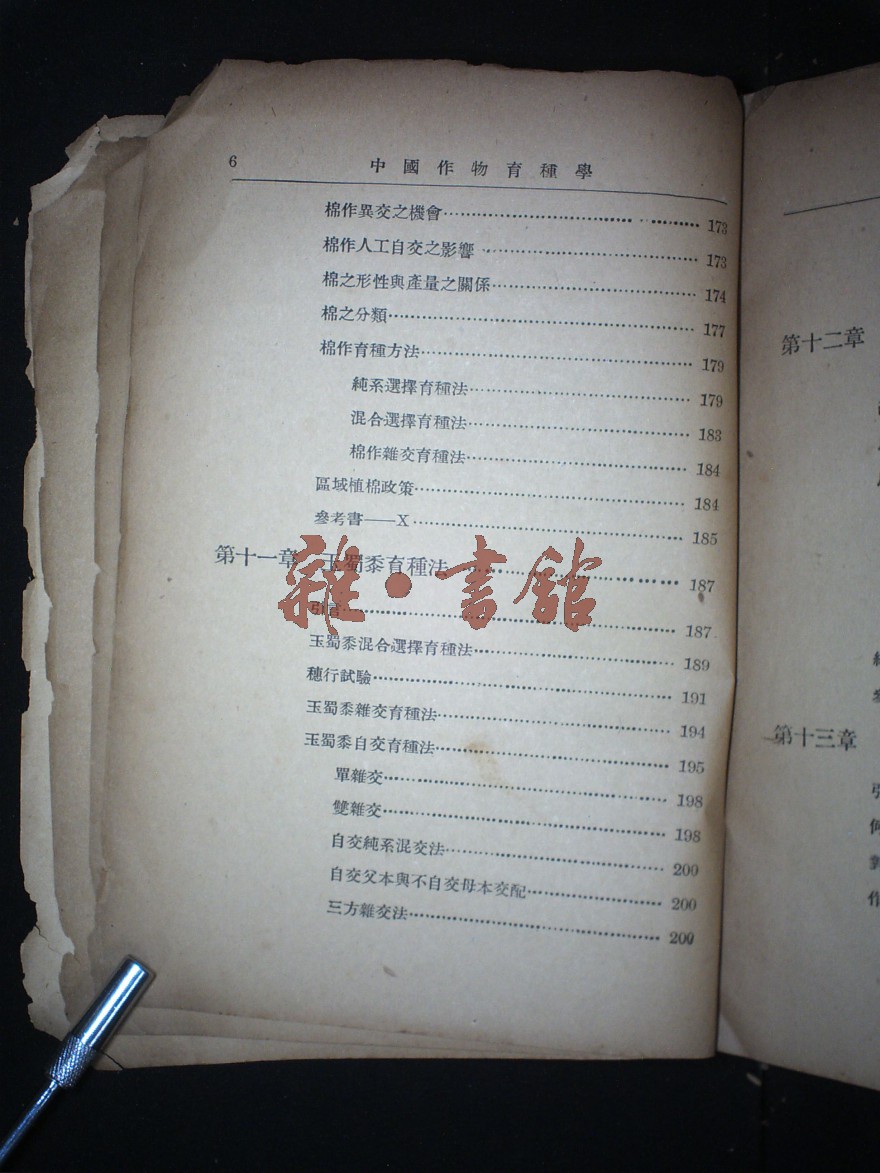 6 中國作物育種學
棉作異交之機會 173
棉作人工自交之影響 173
棉之形性與產量之關係 174
棉之分類 177
棉作育種方法 179
純系選擇育種法 179
混合選擇育種法 183
棉作雜交育種法 184
區域植棉政策 184
參考書——X 185
第十一章 玉蜀黍育種法 187
引言 187
玉蜀黍混合選擇育種法 189
穗行試驗 191
玉蜀黍雜交育種法 194
玉蜀黍自交育種法 195
單雜交 198
雙雜交 198
自交純系混交法 200
自交父本與不自交母本交配 200
三方雜交法 200
雜·書館
第十二章
第十三章
引
何
作